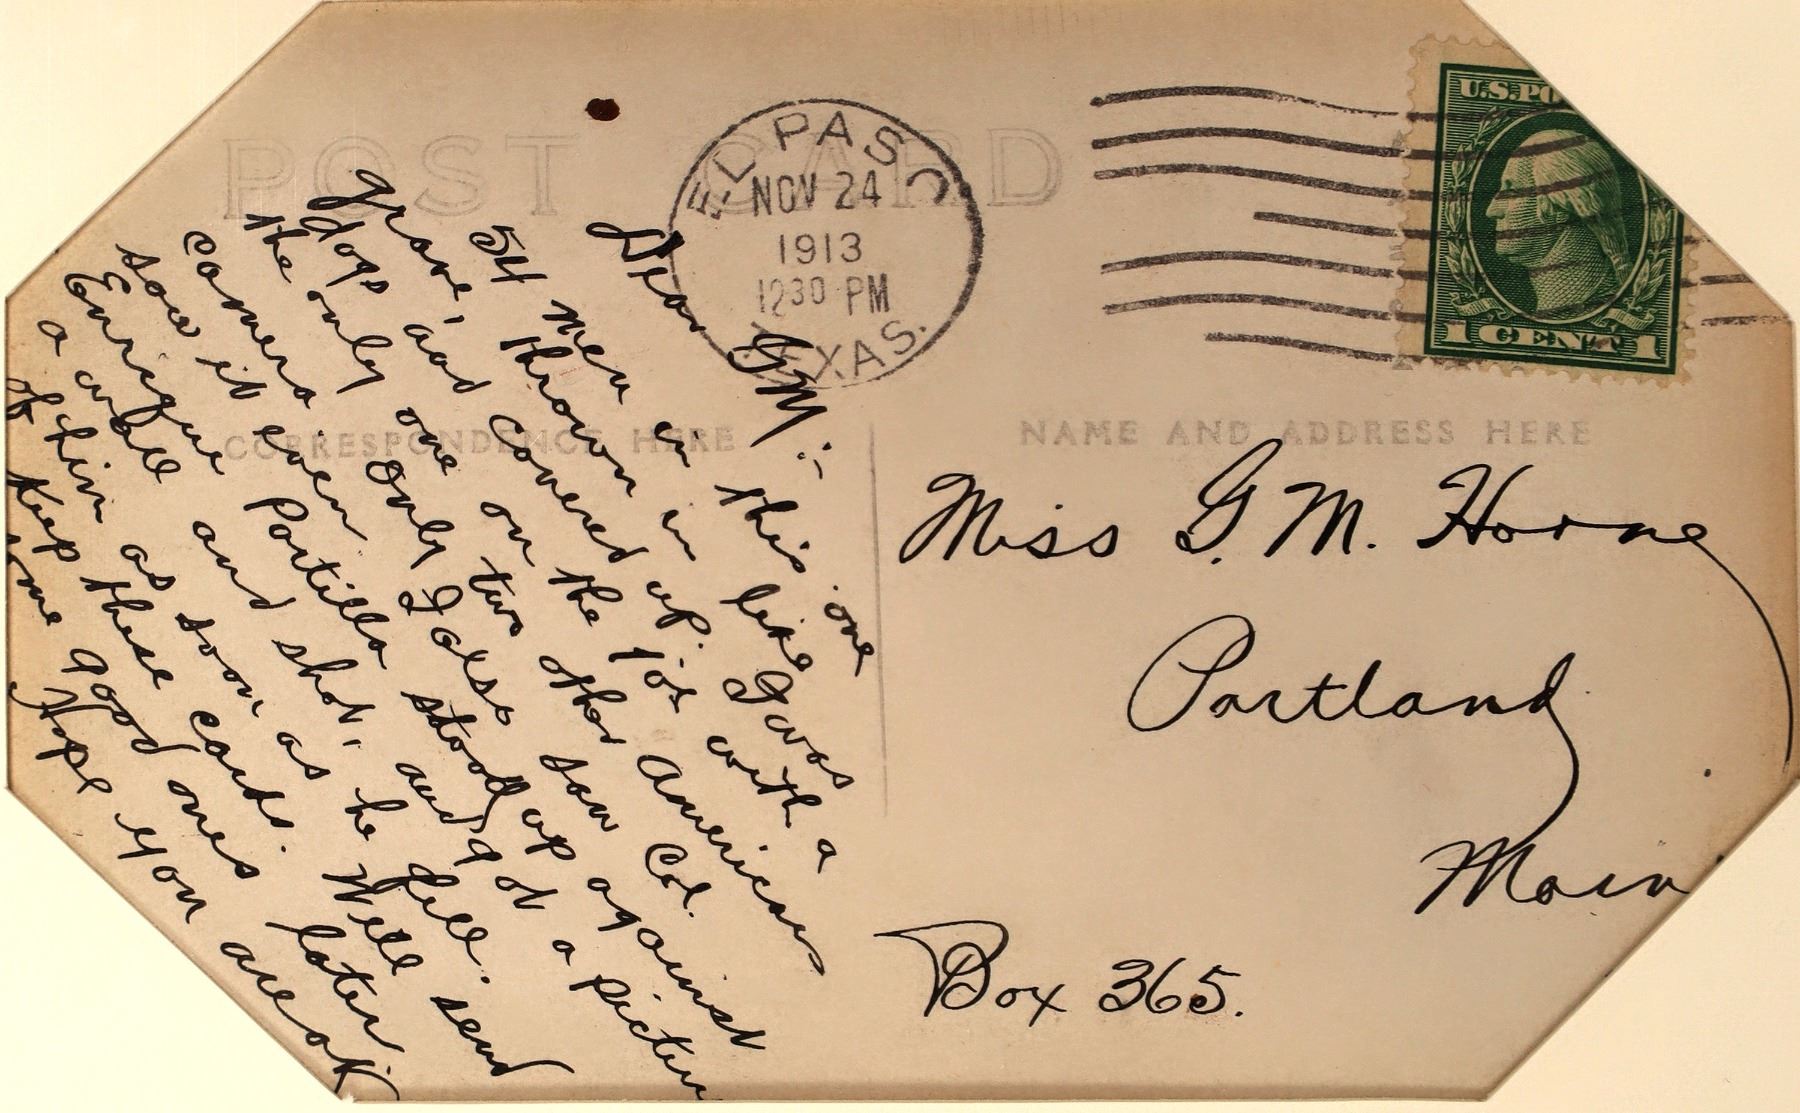 POST CARD
EL PASO
NOV 24
1913
12 30 PM
TEXAS.
U.S. PO
1 CENT 1
CORRESPONDENCE HERE
NAME AND ADDRESS HERE
Dear GM:-
54 men in this one
grave, thrown in like
dogs and covered up. I was
the only one on the job with a
camera only two other Americans
saw it even I also saw Col.
Enrique Portilla stood up against
a wall and shot, and got a pictur
of him as soon as he fell.
Keep these cards. Will send
some good ones later
Hope you are ok
Miss G. M. Horne
Portland
Main
Box 365.